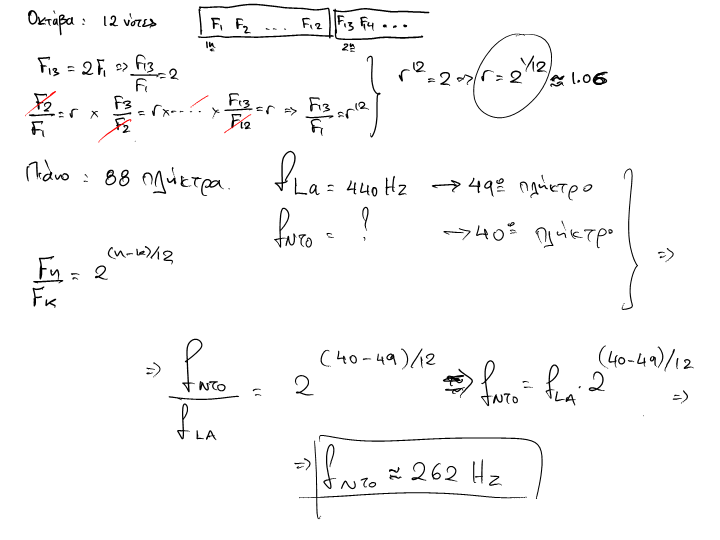 Οκτάβα : 12 νότες F₁ F₂ ... F₁₂ F₁₃ F₁₄ ...
1η 2η
F₁₃ = 2F₁ => F₁₃/F₁ = 2
r¹² = 2 => r = 2^1/12 ≈ 1.06
F₂/F₁ = r × F₃/F₂ = r × ... × F₁₃/F₁₂ = r => F₁₃/F₁ = r¹²
Πιάνο : 88 πλήκτρα. f_La = 440 Hz → 49º πλήκτρο
f_Ντο = ? → 40º πλήκτρο =>
Fn/Fκ = 2^(n-κ)/12
=> f_Ντο/f_LA = 2^(40-49)/12 => f_Ντο = f_LA · 2^(40-49)/12 =>
=> f_Ντο ≈ 262 Hz